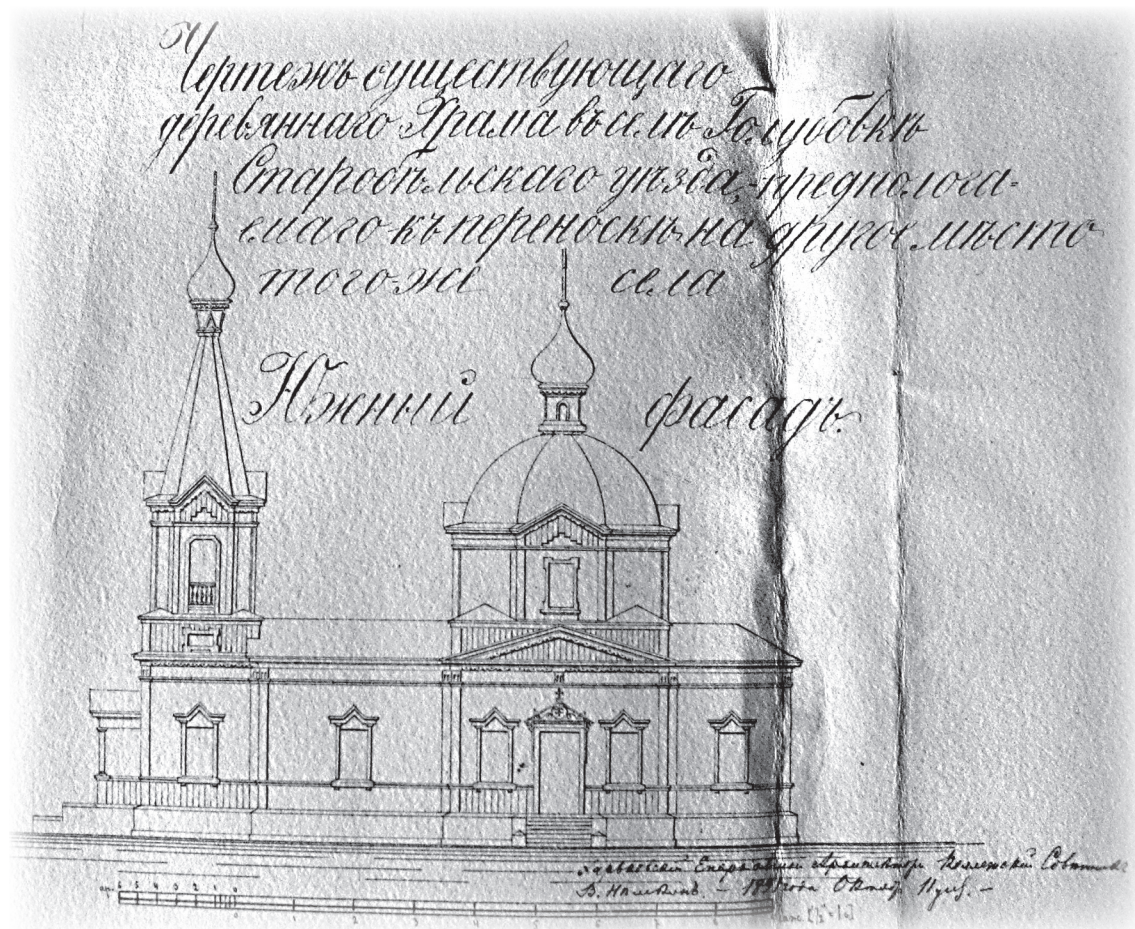 Чертежъ существующаго
деревяннаго Храма въ селѣ Голубовкѣ
Старобѣльскаго уѣзда, предпологa-
емаго къ переноскѣ на другое мѣсто
того-же села
Южный фасадъ.
Харьковскій Епархіальный Архитекторъ Коллежскій Совѣтникъ
В. Немкинъ. – года Октябр. 11 дня. –
6 5 4 3 2 1 0
0 1 2 3 4 5 6 7 8 9